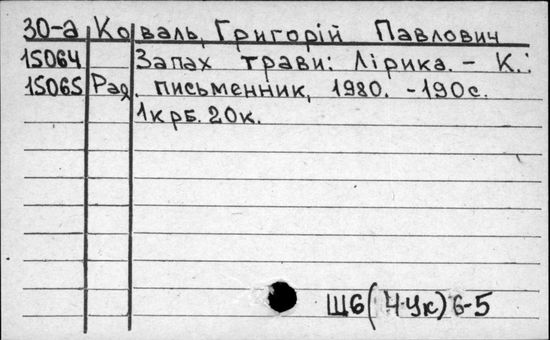 30-а Коваль, Григорій Павлович
15064 Запах трави: Лірика. - К.:
15065 Рад. письменник, 1980. - 190 с.
1 крб. 20к.
Ш6(4-Ук)6-5